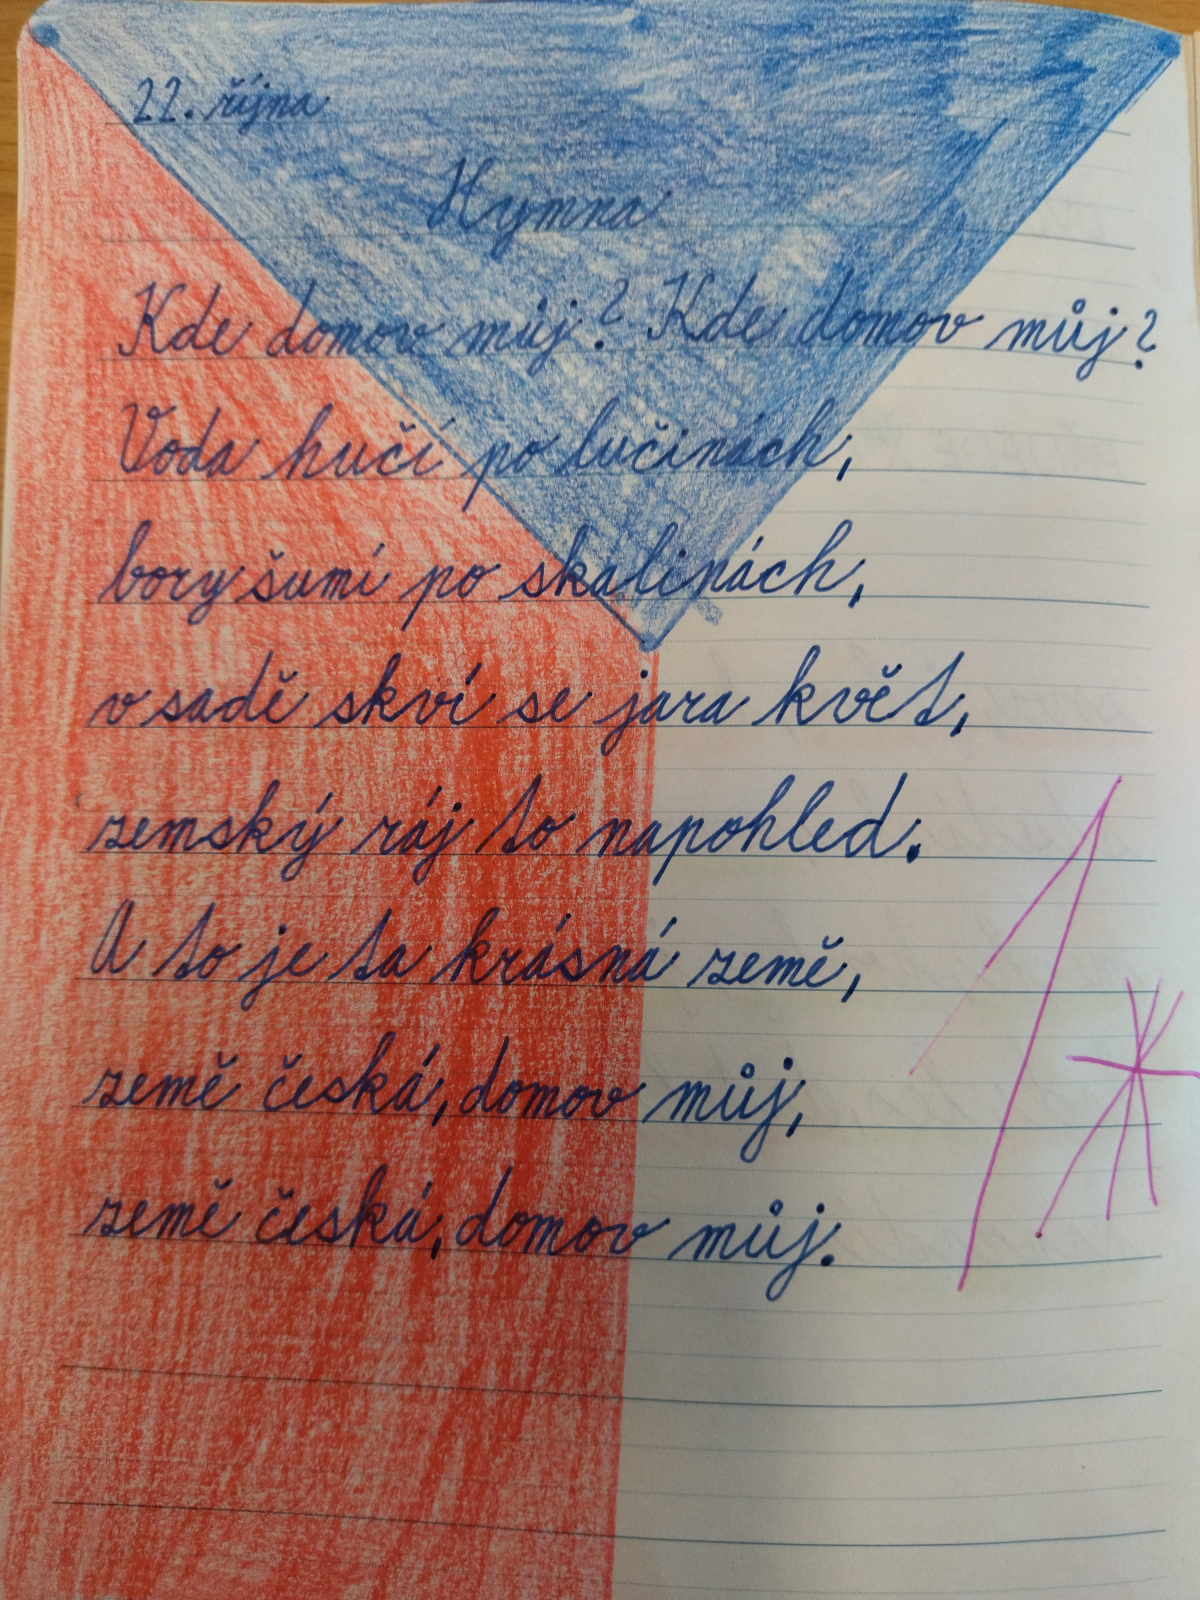 22. října
Hymna
Kde domov můj? Kde domov můj?
Voda hučí po lučinách,
bory šumí po skalinách,
v sadě skví se jara květ,
zemský ráj to napohled.
A to je ta krásná země,
země česká, domov můj,
země česká, domov můj.
1*